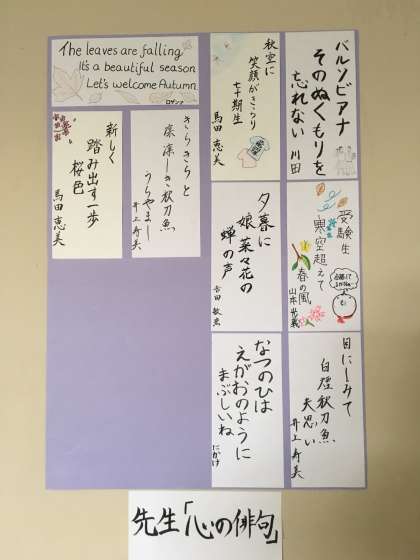 The leaves are falling
It's a beautiful season
Let's welcome Autumn
ロザンナ
バルソビアナ
そのぬくもりを
忘れない
川田
秋空に
笑顔がきらり
七十期生
馬田恵美
きらきらと
凛凛しき秋刀魚
うらやまし
井上寿美
新しく
踏み出す一歩
桜色
馬田恵美
受験生
寒空超えて
春の風
山本
夕暮に
娘菜々花の
蝉の声
吉田
目にしみて
白煙秋刀魚
夫思い
井上寿美
なつのひは
えがおのように
まぶしいね
たかけ
先生「心の俳句」